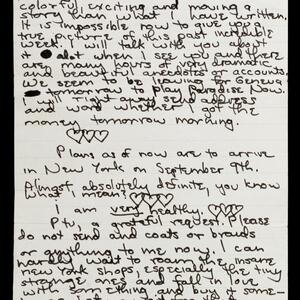 colorful, exciting and moving a
story than what I have written.
It is impossible now to give you a
true picture of this past incredible
week. I will talk with you about
it alot when I see you and there
are many hours of very dramatic
and beautiful anecdotes or accounts.
We seem to be leaving for Geneva
tomorrow to play Paradise Now.
I'll right now send address
and word when I got the
money tomorrow morning.
Plans as of now are to arrive
in New York on September 9th.
Almost absolutely definite, you know
what I mean?
I am very healthy.
P.W. a grateful request. Please
do not send and coats or braids
or anything to me now. I can
hardly wait to roam the insane
New York shops, especially the tiny
strange ones and fall in love
with something and buy it some-